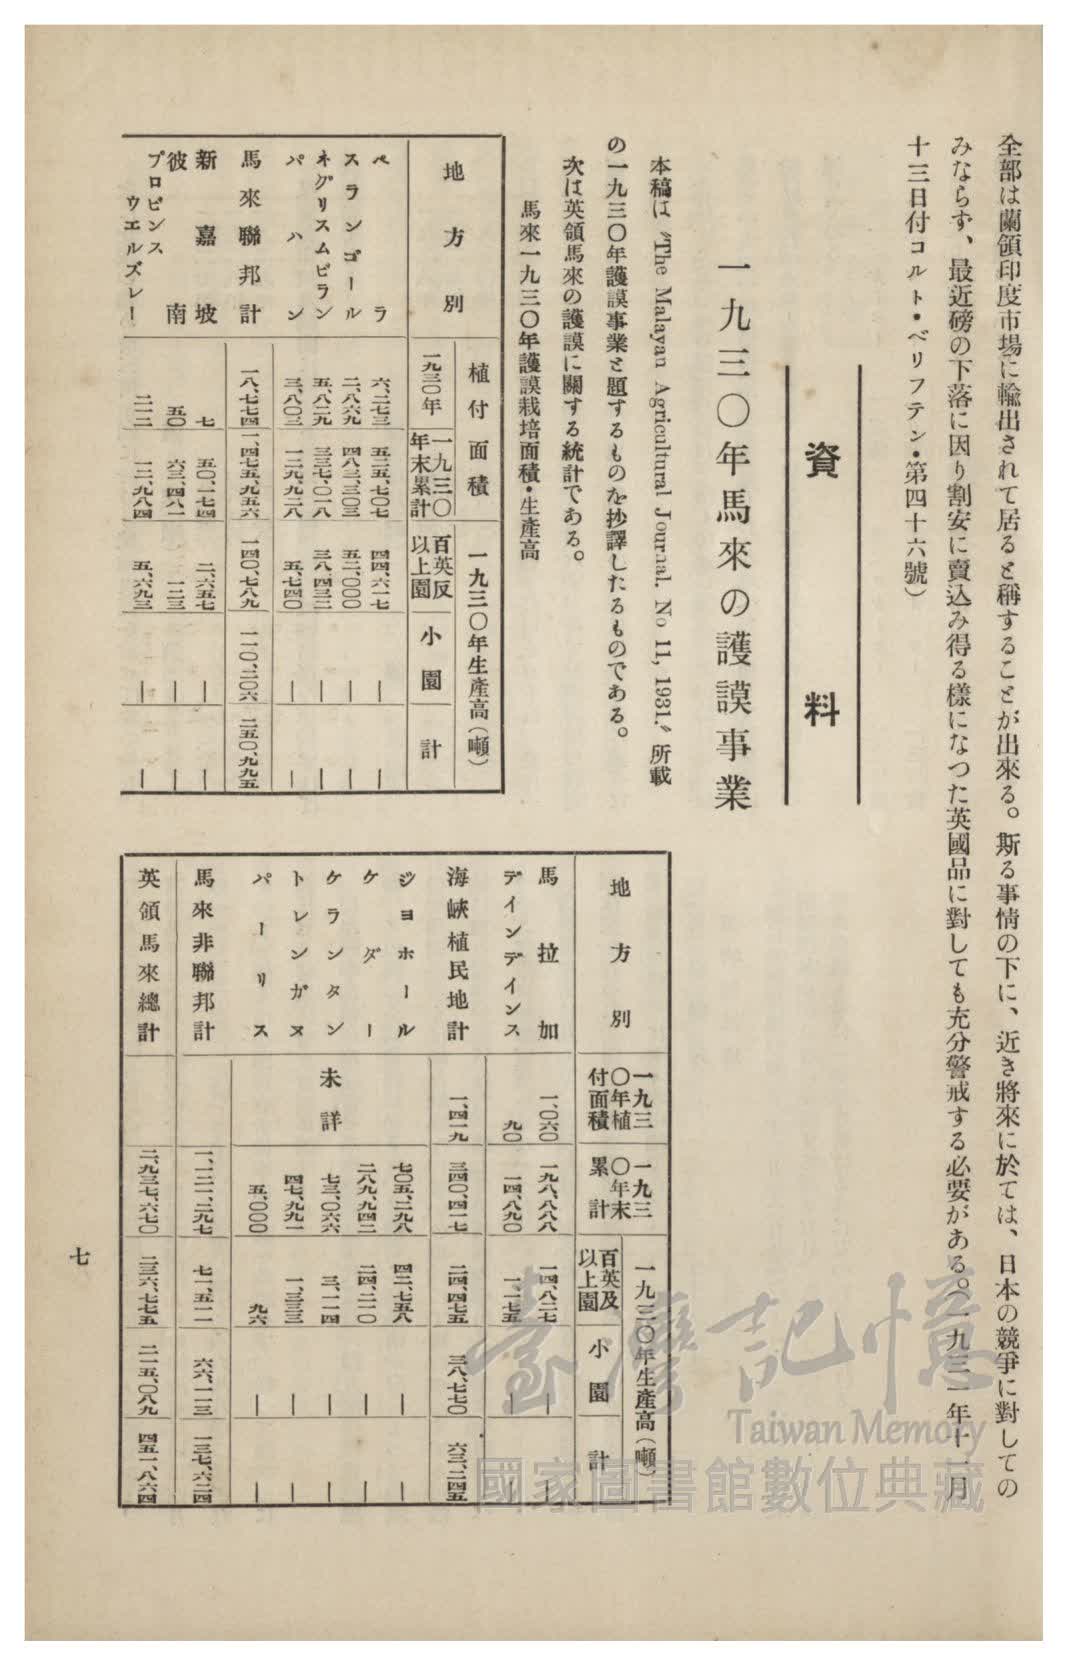 全部は蘭領印度市場に輸出されて居ると稱することが出來る。斯る事情の下に、近き將來に於ては、日本の競爭に對しての
みならず、最近磅の下落に因り割安に賣込み得る樣になつた英國品に對しても充分警戒する必要がある。(一九三一年十一月
十三日付コルト・ベリフテン・第四十六號)
資料
一九三〇年馬來の護謨事業
本稿は〝The Malayan Agricultural Journal. No 11, 1931.〟所載
の一九三〇年護謨事業と題するものを抄譯したるものである。
次は英領馬來の護謨に關する統計である。
馬來一九三〇年護謨栽培面積・生產高
地方別
植付面積
一九三〇年
一九三〇年末累計
一九三〇年生產高(噸)
百英反以上園
小園
計
ペラ 六、二七三 五二五、七〇七 四四、六一七 — —
スランゴール 二、八六九 四八三、三〇三 五二、〇〇〇 — —
ネグリスムビラン 五、八二九 三三七、〇一八 三八、四三二 — —
パハン 三、八〇三 一二九、九二八 五、七四〇 — —
馬來聯邦計 一八、七七四 一、四七五、九五六 一四〇、七八九 一一〇、二〇六 二五〇、九九五
新嘉坡 七 五〇、一七四 二、六五七 — —
彼南 五〇 六三、四八一 一二三 — —
プロビンスウエルズレー 二一二 一二、九八四 五、六九三 — —
地方別
一九三〇年植付面積
一九三〇年末累計
一九三〇年生產高(噸)
百英及以上園
小園
計
馬拉加 一、〇六〇 一九八、八八八 一四、八二七 — —
デインデインス 九〇 一四、八九〇 一、一七五 — —
海峽植民地計 一、四一九 三四〇、四一七 二四、四七五 三八、七七〇 六三、二四五
ジヨホール 七〇五、二九八 四二、七五八 — —
ケダー 二八九、九四二 二四、二一〇 — —
ケランタン 七三、〇六六 三、一一四 — —
トレンガヌ 四七、九九一 一、三三三 — —
パーリス 五、〇〇〇 九六 — —
未詳
馬來非聯邦計 一、一二一、二九七 七一、五一一 六六、一一三 一三七、六二四
英領馬來總計 二、九三七、六七〇 二三六、七七五 二一五、〇八九 四五一、八六四
七
臺灣記憶
Taiwan Memory
國家圖書館數位典藏